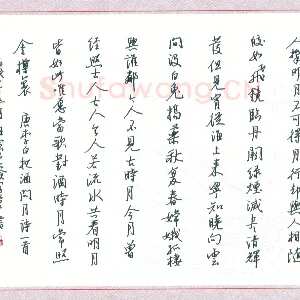 人攀明月不可得月行却與人相隨
皎如飛鏡臨丹闕綠煙滅尽清輝
發但見宵從海上來寧知曉向雲
間沒白兔搗藥秋復春嫦娥孤棲
與誰鄰今人不見古時月今月曾
經照古人古人今人若流水共看明月
皆如此唯願當歌對酒時月常照
金樽裏 唐李白把酒問月詩首
Shufawang.Cn